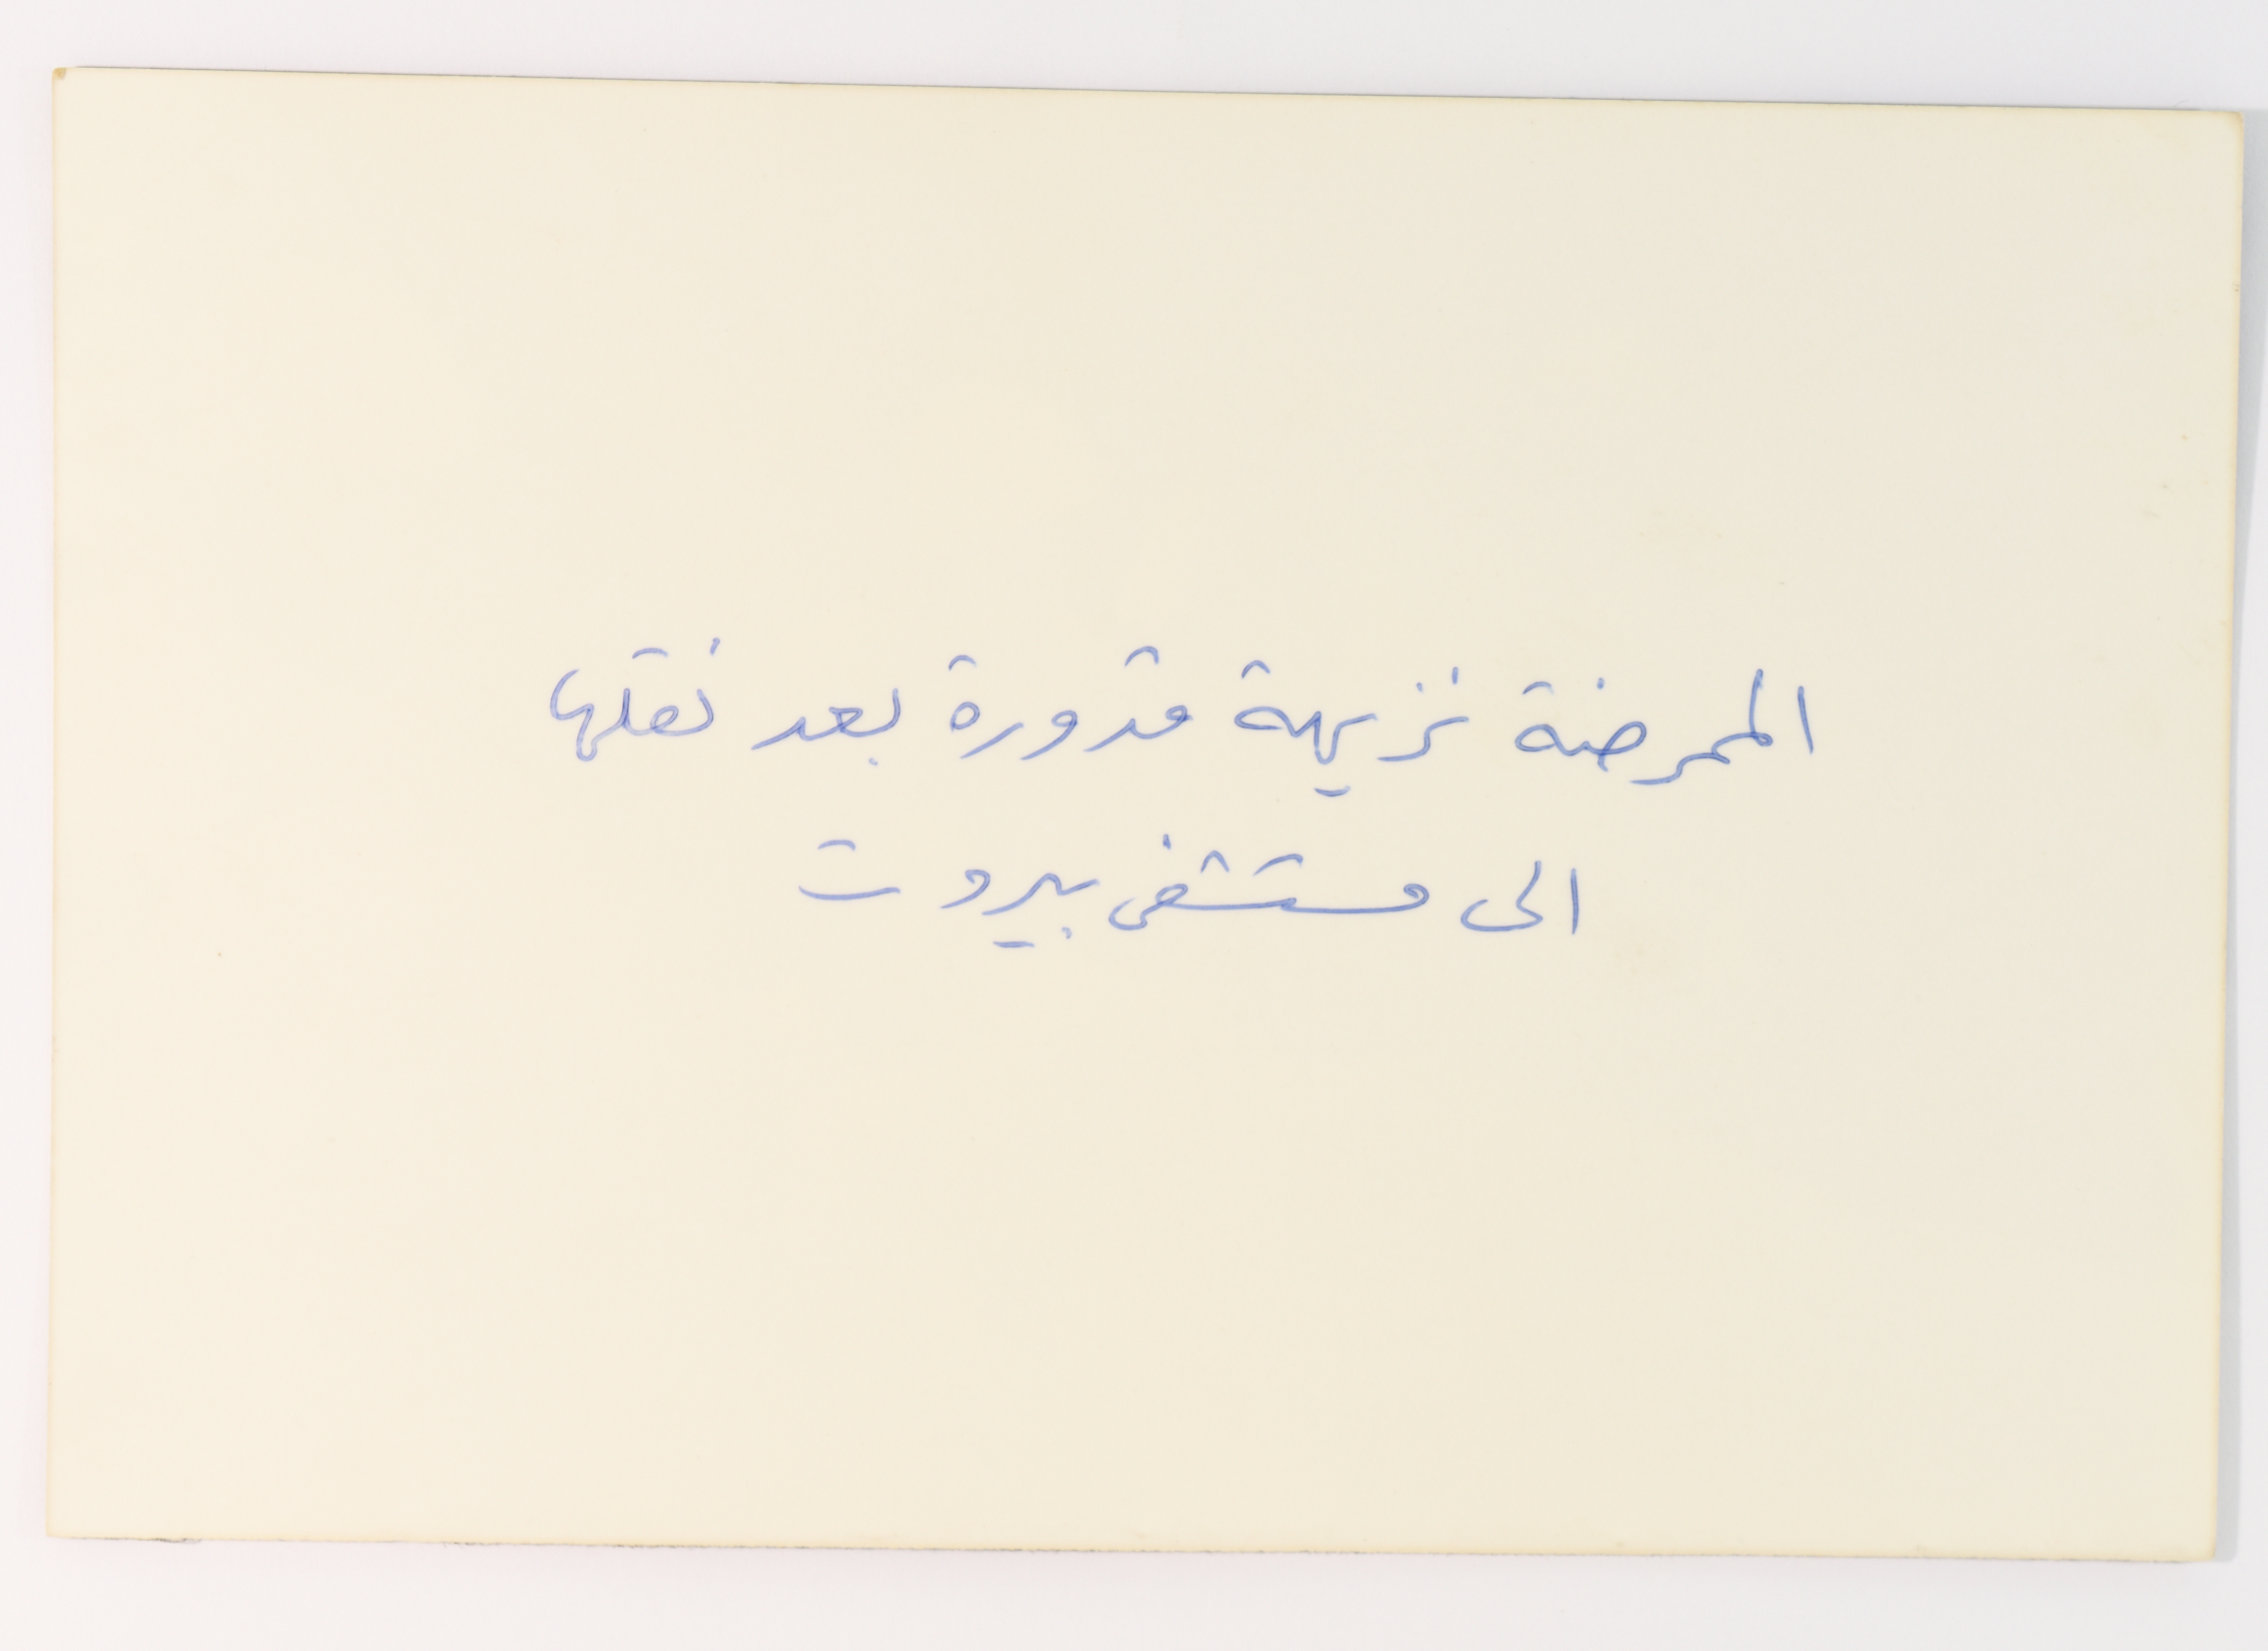 الممرضة نزيهة قدورة بعد نقلها
الى مستشفى بيروت